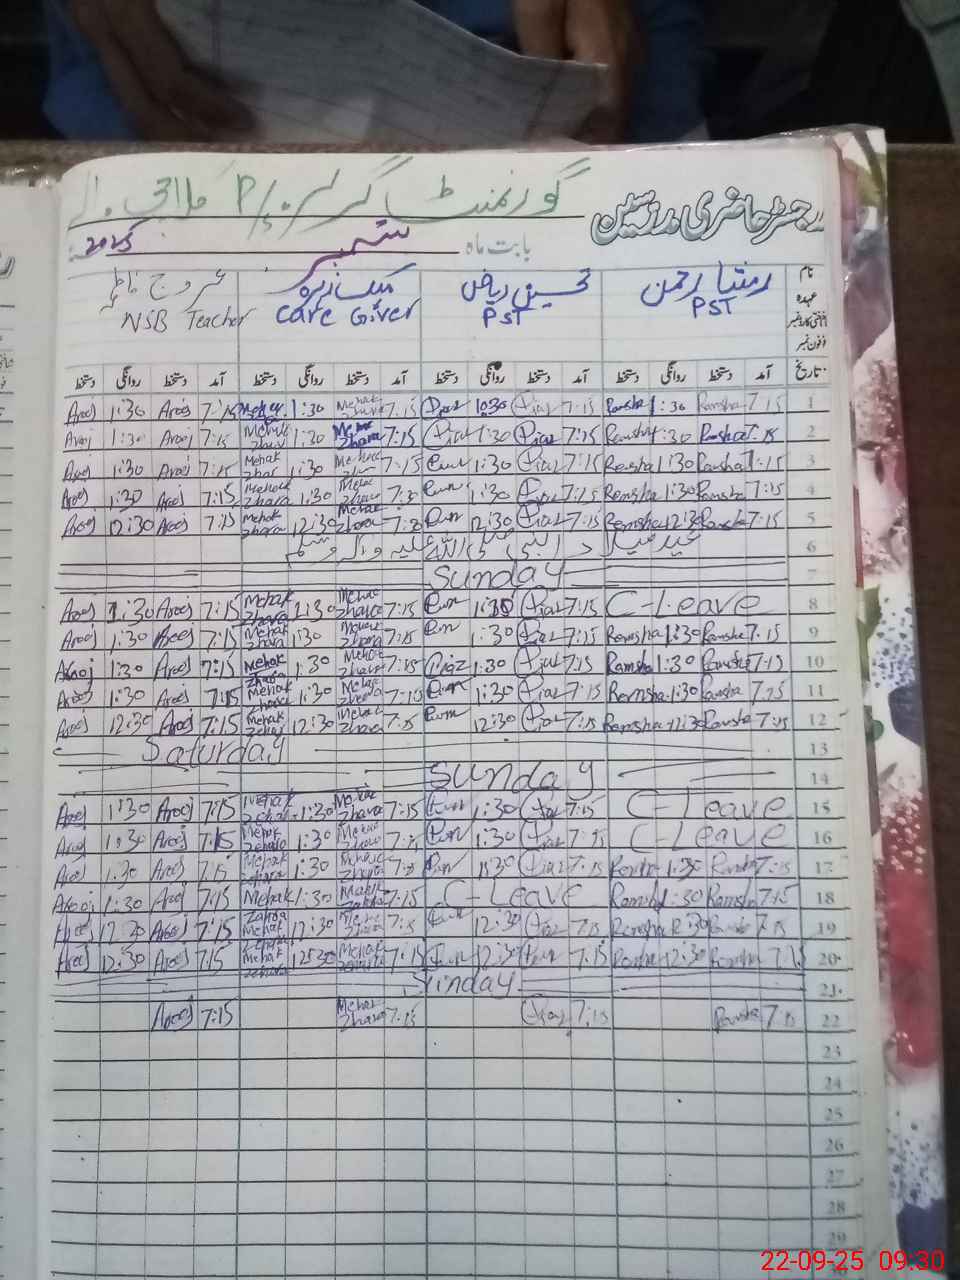 رجسٹر حاضری مدرسین گورنمنٹ گرلز P/S
بابت ماہ ستمبر 2025
نام رمشا رحمن تحسین ریاض مہک زہرہ عروج فاطمہ
عہدہ PST PST Care Giver NSB Teacher
فون نمبر
تاریخ آمد دستخط روانگی دستخط آمد دستخط روانگی دستخط آمد دستخط روانگی دستخط آمد دستخط روانگی دستخط
1 7:15 Ramsha 1:30 Ramsha 7:15 7:15 Mehak Zhara 1:30 Mehak 7:15 Arooj 1:30 Arooj
2 7:15 Ramsha 1:30 Ramsha 7:15 1:30 7:15 Mehak Zhara 1:30 Mehak Zhara 7:15 Arooj 1:30 Arooj
3 7:15 Ramsha 1:30 Ramsha 7:15 1:30 7:15 Mehak 1:30 Mehak Zhara 7:15 Arooj 1:30 Arooj
4 7:15 Ramsha 1:30 Ramsha 7:15 1:30 Mehak Zhara 1:30 Mehak Zhara 7:15 Arooj 1:30 Arooj
5 7:15 Ramsha 12:30 Ramsha 7:15 12:30 Mehak Zhara 12:30 Mehak Zhara 7:15 Arooj 12:30 Arooj
6 عید میلاد النبی صلی اللہ علیہ والہ وسلم
7 Sunday
8 C-Leave 7:15 1:30 7:15 Mehak Zhara 1:30 Mehak Zhara 7:15 Arooj 1:30 Arooj
9 7:15 Ramsha 1:30 Ramsha 7:15 1:30 7:15 Mehak Zhara 1:30 Mehak Zhara 7:15 Arooj 1:30 Arooj
10 7:15 Ramsha 1:30 Ramsha 7:15 1:30 7:15 Mehak Zhara 1:30 Mehak Zhara 7:15 Arooj 1:30 Arooj
11 7:15 Ramsha 1:30 Ramsha 7:15 1:30 7:15 Mehak Zhara 1:30 Mehak Zhara 7:15 Arooj 1:30 Arooj
12 7:15 Ramsha 12:30 Ramsha 7:15 12:30 7:15 Mehak Zhara 12:30 Mehak Zhara 7:15 Arooj 12:30 Arooj
13 Saturday
14 Sunday
15 C-Leave 7:15 1:30 7:15 Mehak Zhara 1:30 Mehak Zhara 7:15 Arooj 1:30 Arooj
16 C-Leave 7:15 1:30 7:15 Mehak Zhara 1:30 Mehak Zhara 7:15 Arooj 1:30 Arooj
17 7:15 Ramsha 1:30 Ramsha 7:15 1:30 Mehak Zhara 1:30 Mehak Zhara 7:15 Arooj 1:30 Arooj
18 7:15 Ramsha 1:30 Ramsha C-Leave 7:15 Mehak Zahra 1:30 Mehak Zahra 7:15 Arooj 1:30 Arooj
19 7:15 Ramsha 12:30 Ramsha 7:15 12:30 7:15 Mehak 12:30 Mehak 7:15 Arooj 12:30 Arooj
20 7:15 Ramsha 12:30 Ramsha 7:15 12:30 7:15 Mehak Zhara 12:30 Mehak Zhara 7:15 Arooj 12:30 Arooj
21 Sunday
22 7:15 Ramsha 7:15 7:15 Mehak Zhara 7:15 Arooj
23
24
25
26
27
28
29
22-09-25 09:30